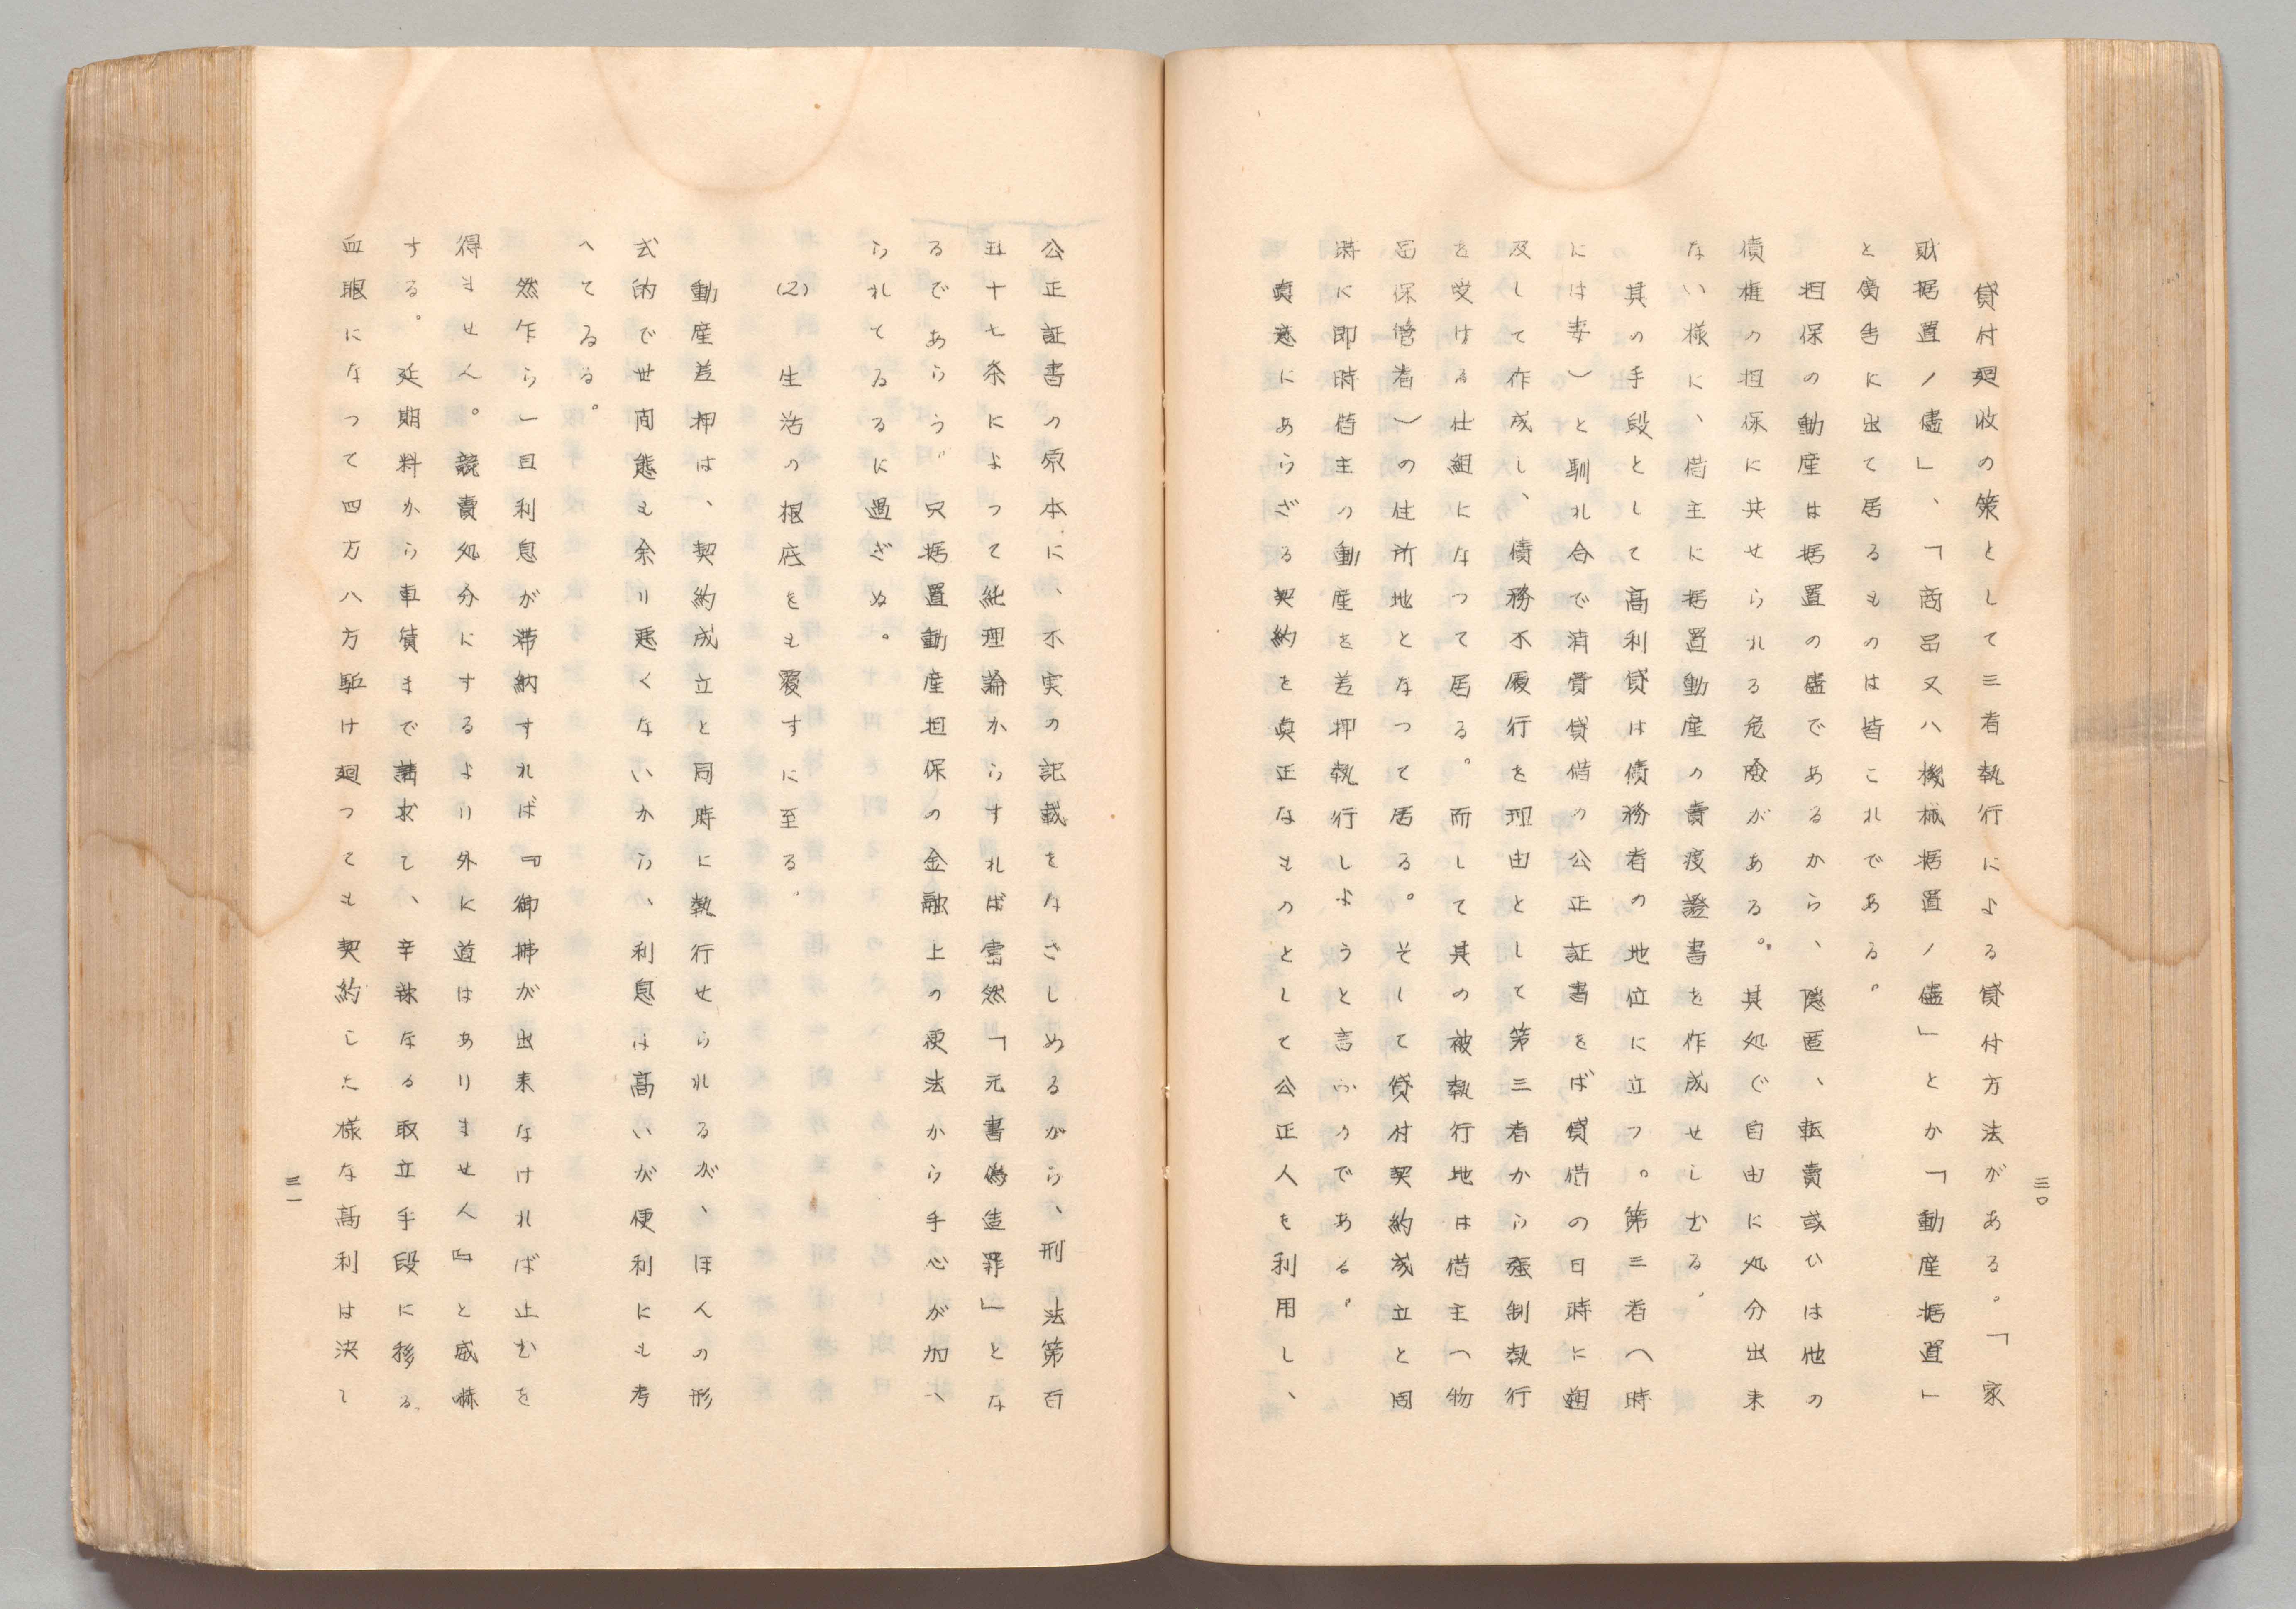 三〇
貸付廻收の策として三者執行による貸付方法がある。「家
財据置ノ儘」、「商品又ハ機械据置ノ儘」とか「動産据置」
と廣告に出て居るものは皆これである。
担保の動産は据置の儘であるから、隠匿、転賣或ひは他の
債権の担保に共せられる危険がある。其処で自由に処分出来
ない様に、借主に据置動産の賣渡證書を作成せしむる。
其の手段として高利貸は債務者の地位に立つ。第三者へ時
には妻）と馴れ合で消費貸借の公正証書をば貸借の日時に遡
及して作成し、債務不履行を理由として第三者から強制執行
を受ける仕組になつて居る。而して其の被執行地は借主（物
品保管者）の住所地となつて居る。そして貸付契約成立と同
時に即時借主の動産を差押執行しようと言ふのである。
真意にあらざる契約を真正なものとして公正人を利用し、
公正証書の原本に、不実の記載をなさしめるから、刑法第百
五十七条によつて純理論からすれば当然「元書偽造罪」とな
るであらう。只据置動産担保の金融上の便法から手心が加へ
られてゐるに過ぎぬ。
(2)　生活の根底をも覆すに至る。
動産差押は、契約成立と同時に執行せられるが、ほんの形
式的で世間態も余り悪くないから、利息は高いが便利にも考
へてゐる。
然乍ら一旦利息が滞納すれば『御拂が出来なければ止むを
得ません。競賣処分にするより外に道はありません』と威嚇
する。延期料から車賃まで請求して、辛辣なる取立手段に移る
血眼になつて四方八方駈け廻つても契約した様な高利は決し
三一